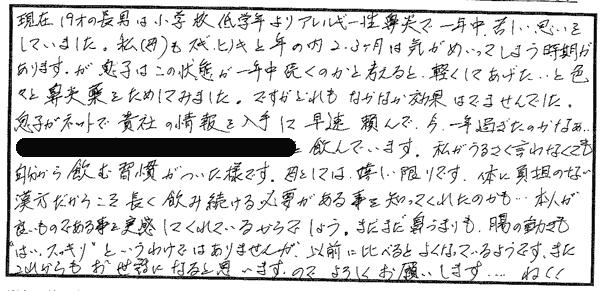 現在19才の長男は小学校低学年よりアレルギー性鼻炎で一年中苦しい思いを
していました。私(母)もスギ、ヒノキと年の内2.3ヶ月は気がめいってしまう時期が
あります。が息子はこの状態が一年中続くのかと考えると、軽くしてあげたい…と色
々と鼻炎薬をためしてみました。ですがどれもなかなか効果はでませんでした。
息子がネットで貴社の情報を入手して早速頼んで、今、一年過ぎたのかなぁ…
と飲んでいます。私がうるさく言わなくても
自分から飲む習慣がついた様です。母としては嬉しい限りです。体に負担のない
漢方だからこそ長く飲み続ける必要がある事を知ってくれたのかも…本人が
良いものである事を実感してくれているからでしょう。まだまだ鼻づまりも、腸の動きも
"はい、スッキリ"というわけではありませんが、以前に比べるとよくなっているようです、また
これからもお世話になると思いますのでよろしくお願いします……